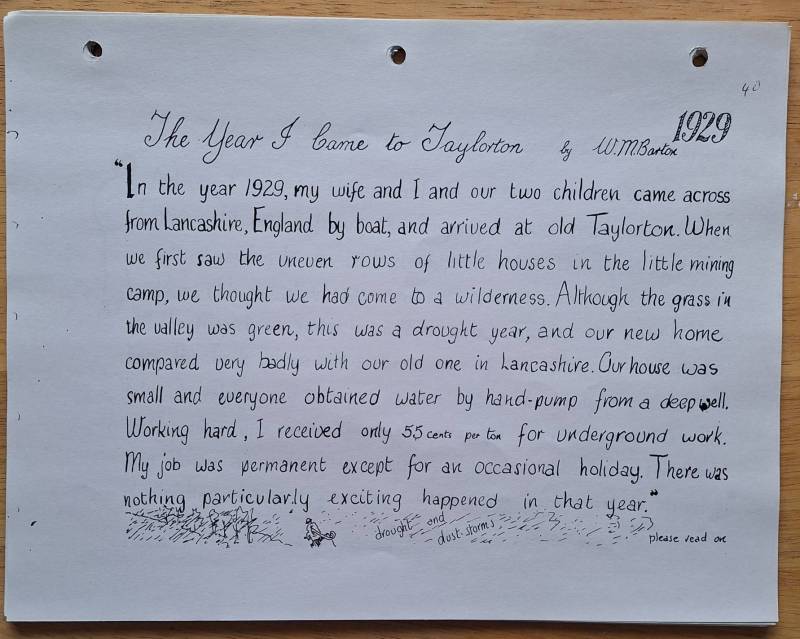 40
The Year I Came to Taylorton by W.M.Barton 1929
"In the year 1929, my wife and I and our two children came across
from Lancashire, England by boat, and arrived at old Taylorton. When
we first saw the uneven rows of little houses in the little mining
camp, we thought we had come to a wilderness. Although the grass in
the valley was green, this was a drought year, and our new home
compared very badly with our old one in Lancashire. Our house was
small and everyone obtained water by hand-pump from a deep well.
Working hard, I received only 55 cents per ton for underground work.
My job was permanent except for an occasional holiday. There was
nothing particularly exciting happened in that year."
drought and
dust-storms
please read on